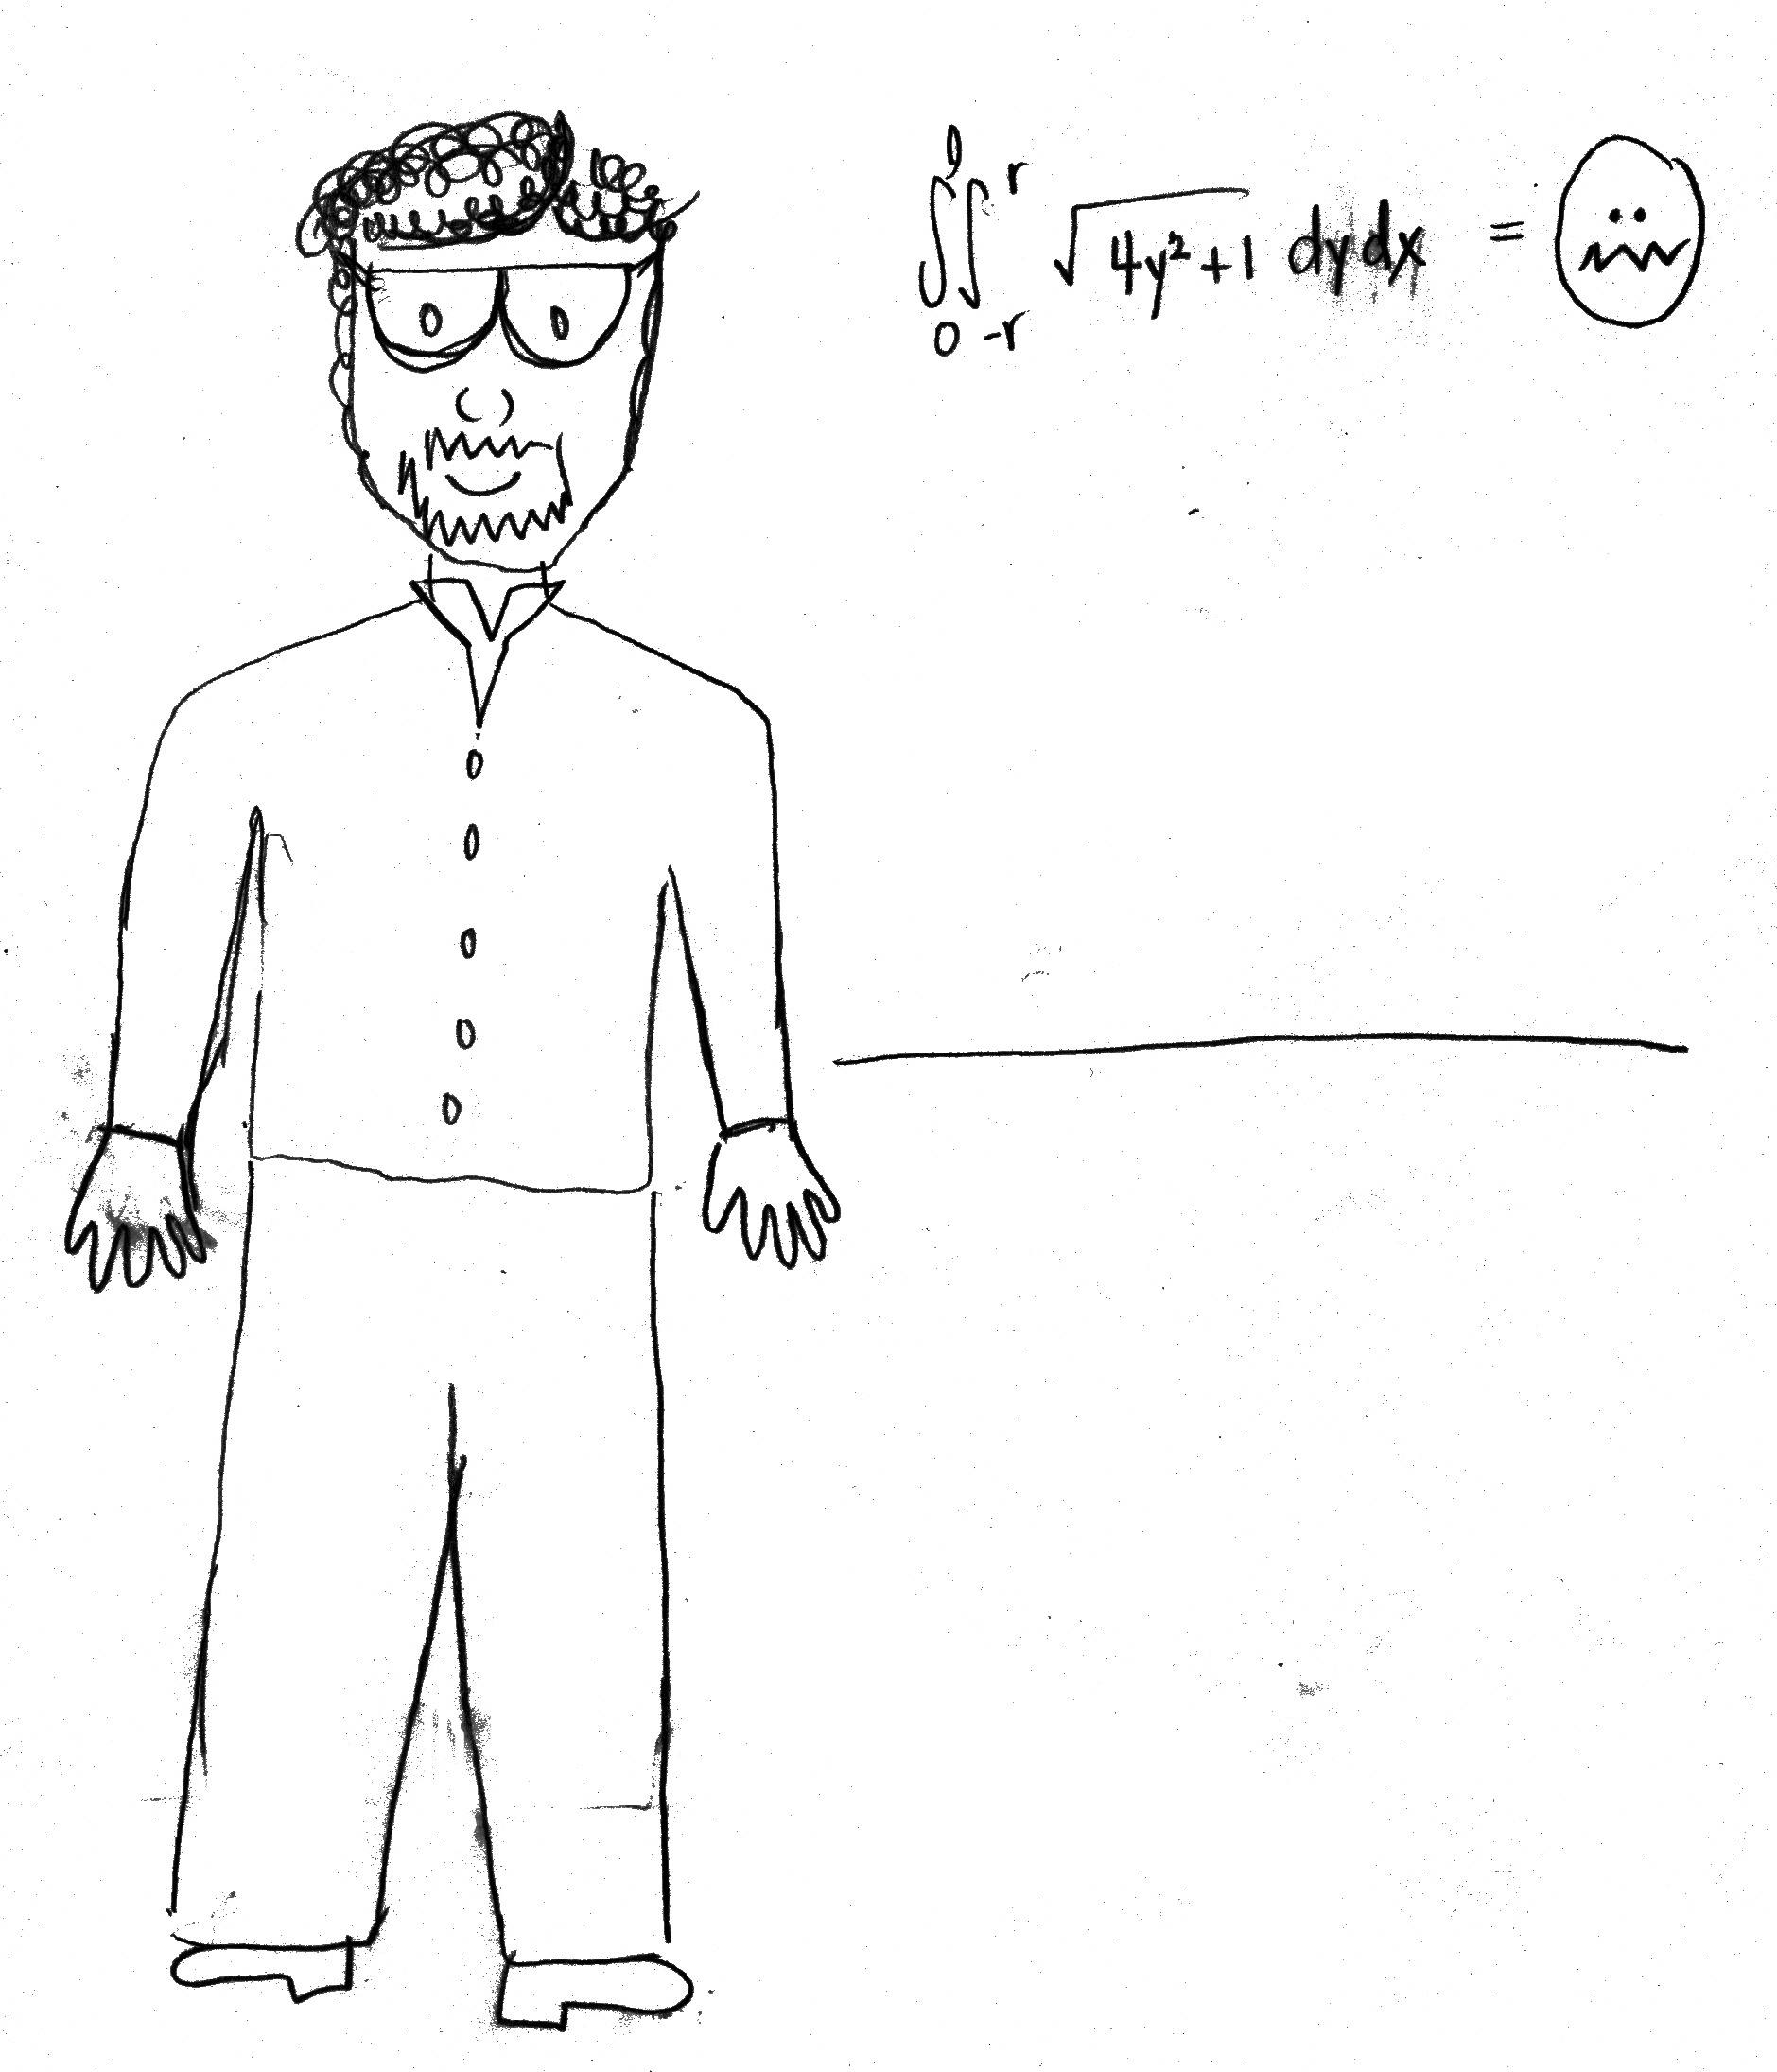 ∫₀⁰ ∫₋ᵣʳ √(4y²+1) dydx =